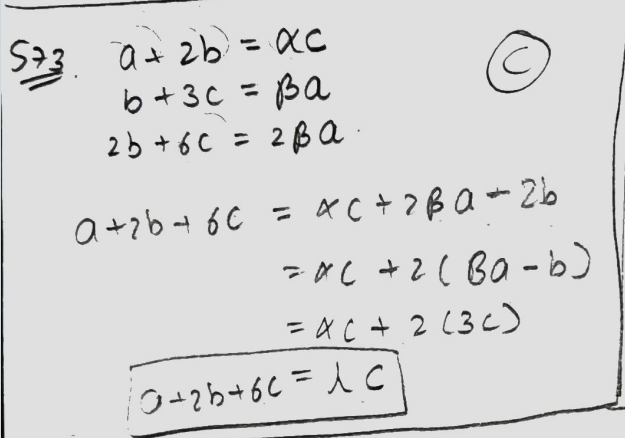 573. a + 2b = αc
C
b + 3c = βa
2b + 6c = 2βa.
a+2b+6c = αc + 2βa - 2b
= αc + 2(βa - b)
= αc + 2(3c)
a+2b+6c = λc